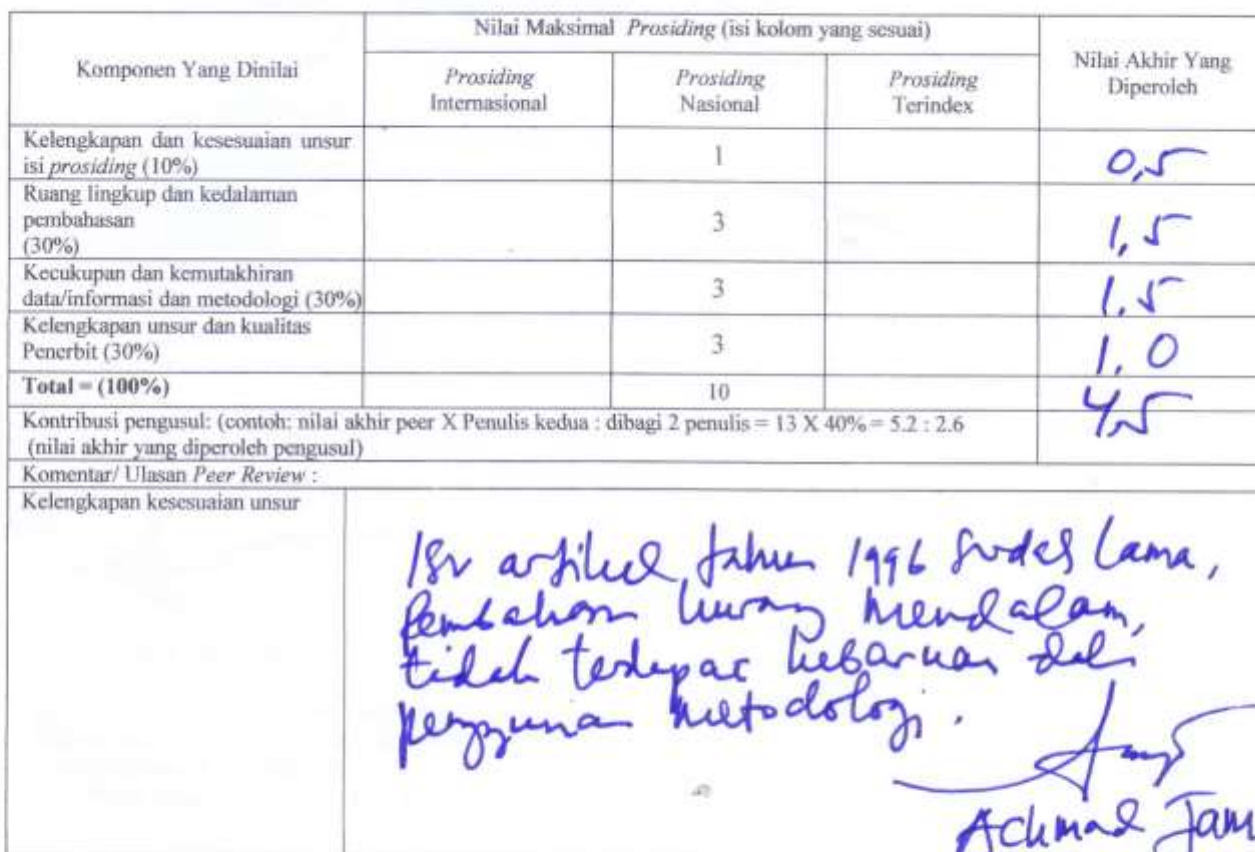 Komponen Yang Dinilai
Nilai Maksimal Prosiding (isi kolom yang sesuai)
Nilai Akhir Yang
Diperoleh
Prosiding
Internasional
Prosiding
Nasional
Prosiding
Terindex
Kelengkapan dan kesesuaian unsur
isi prosiding (10%)
1
0,5
Ruang lingkup dan kedalaman
pembahasan
(30%)
3
1,5
Kecukupan dan kemutakhiran
data/informasi dan metodologi (30%)
3
1,5
Kelengkapan unsur dan kualitas
Penerbit (30%)
3
1,0
Total = (100%)
10
4,5
Kontribusi pengusul: (contoh: nilai akhir peer X Penulis kedua : dibagi 2 penulis = 13 X 40% = 5.2 : 2.6
(nilai akhir yang diperoleh pengusul)
Komentar/ Ulasan Peer Review :
Kelengkapan kesesuaian unsur
Isi artikel tahun 1996 sudah lama,
pembahasan kurang mendalam,
tidak terdapat kebaruan dalam
penggunaan metodologi.
Achmad Jam